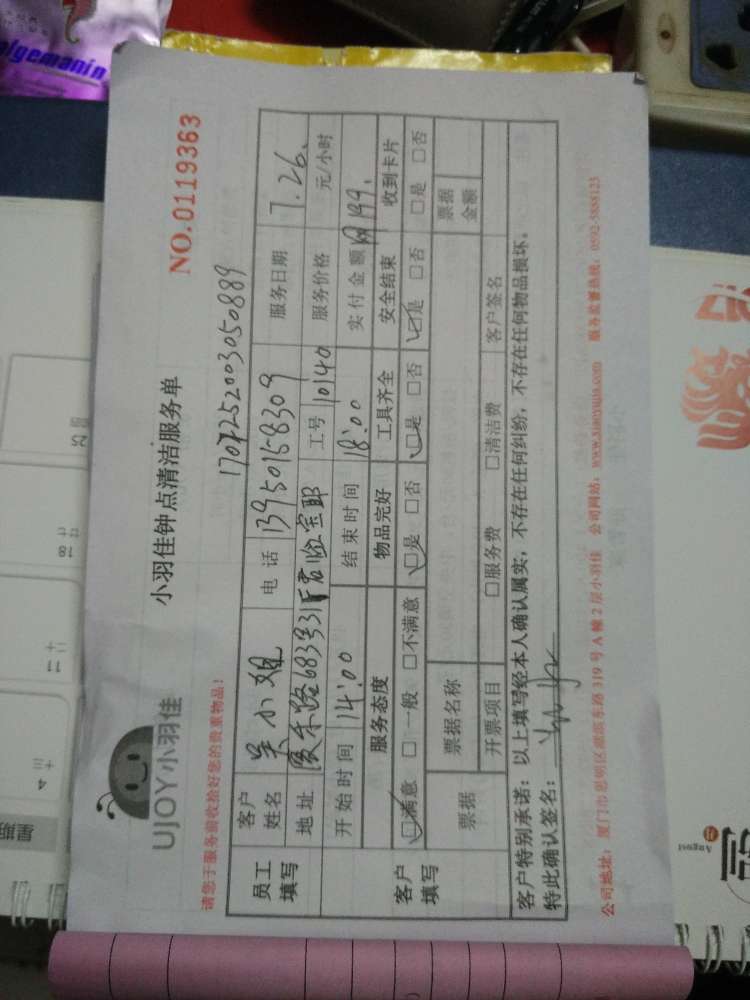 UJOY小羽佳
小羽佳钟点清洁服务单
NO.0119363
请您于服务前收拾好您的贵重物品!
1707252003050889
员工填写
客户姓名 吴小姐 电话 13950158309 服务日期 7.26.
地址 683号31 工号 10140 服务价格 元/小时
开始时间 14:00 结束时间 18:00 实付金额 199.
客户填写
服务态度 物品完好 工具齐全 安全结束 收到卡片
☑满意 □一般 □不满意 ☑是 □否 ☑是 □否 ☑是 □否 □是 □否
票据 票据名称 票据金额
开票项目 □服务费 □清洁费 客户签名
客户特别承诺:以上填写经本人确认属实,不存在任何纠纷,不存在任何物品损坏。
特此确认签名:
公司地址:厦门市思明区湖滨东路319号A幢2层小羽佳 公司网站:www.xiaoyujia.com 服务监督热线:0592-5888123
August
星期
4
11
18
25